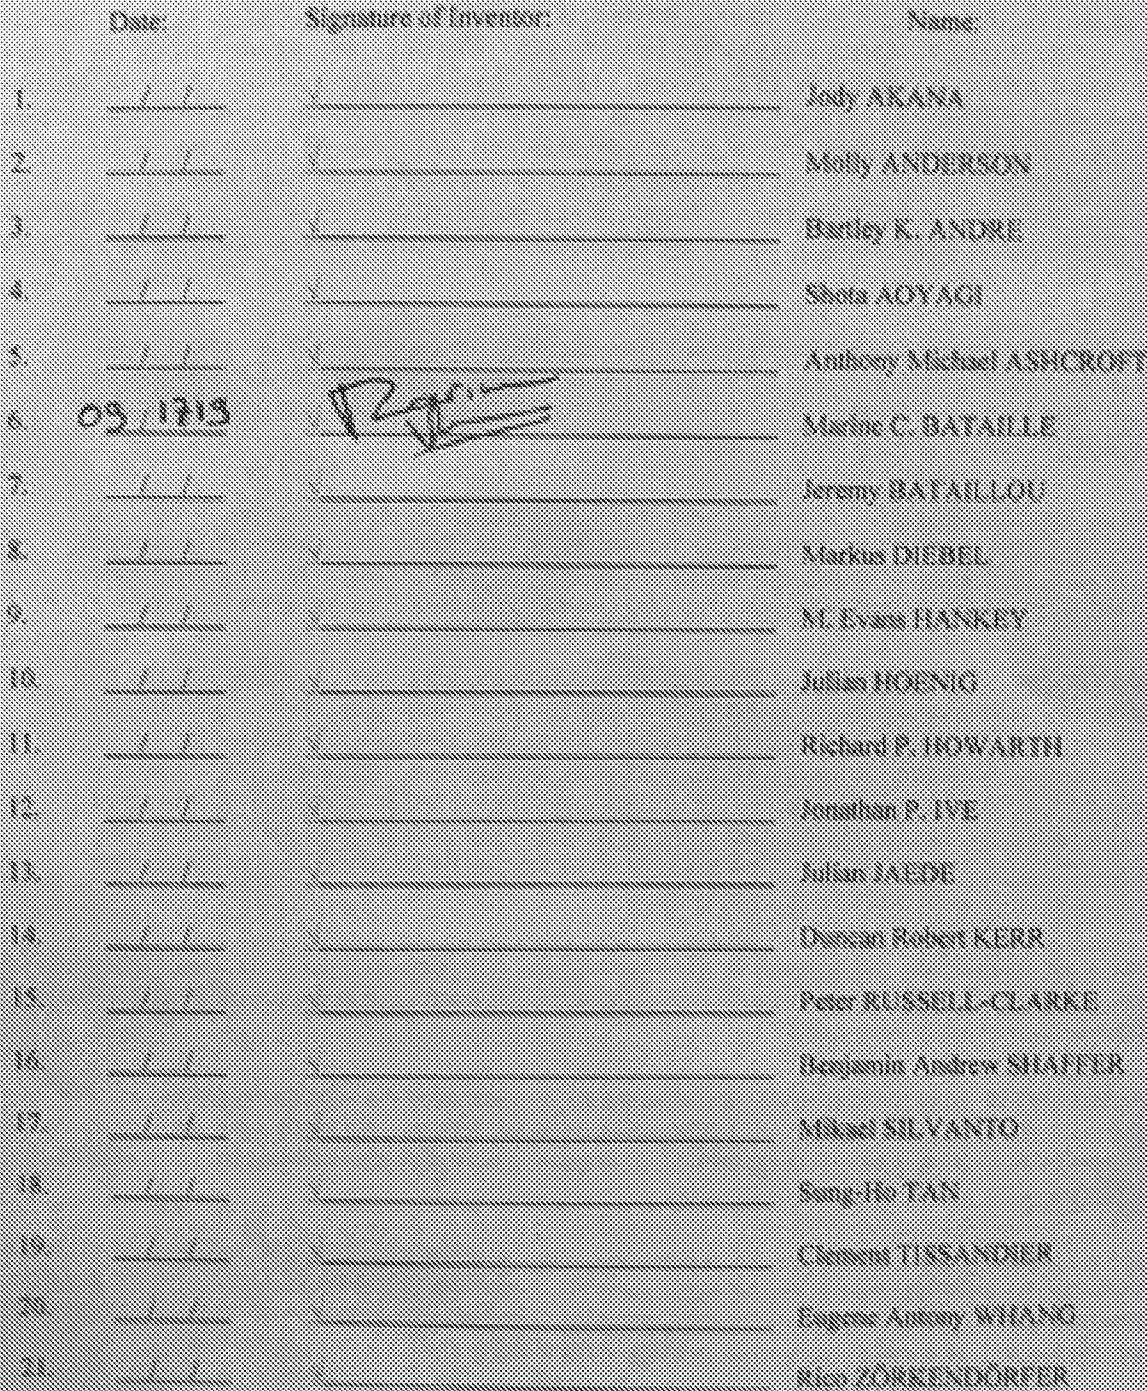 Date: Signature of Inventor: Name:
1. / / X Jody AKANA
2. / / X Molly ANDERSON
3. / / X Bartley K. ANDRE
4. / / X Shota AOYAGI
5. / / X Anthony Michael ASHCROFT
6. 09 / 17 19 X Marine C. BATAILLE
7. / / X Jeremy BATAILLOU
8. / / X Markus DIEBEL
9. / / X M. Evans HANKEY
10. / / X Julian HOENIG
11. / / X Richard P. HOWARTH
12. / / X Jonathan P. IVE
13. / / X Julian JAEDE
14. / / X Duncan Robert KERR
15. / / X Peter RUSSELL-CLARKE
16. / / X Benjamin Andrew SHAFFER
17. / / X Mikael SILVANTO
18. / / X Sung-Ho TAN
19. / / X Clement TISSANDIER
20. / / X Eugene Antony WHANG
21. / / X Rico ZÖRKENDÖRFER